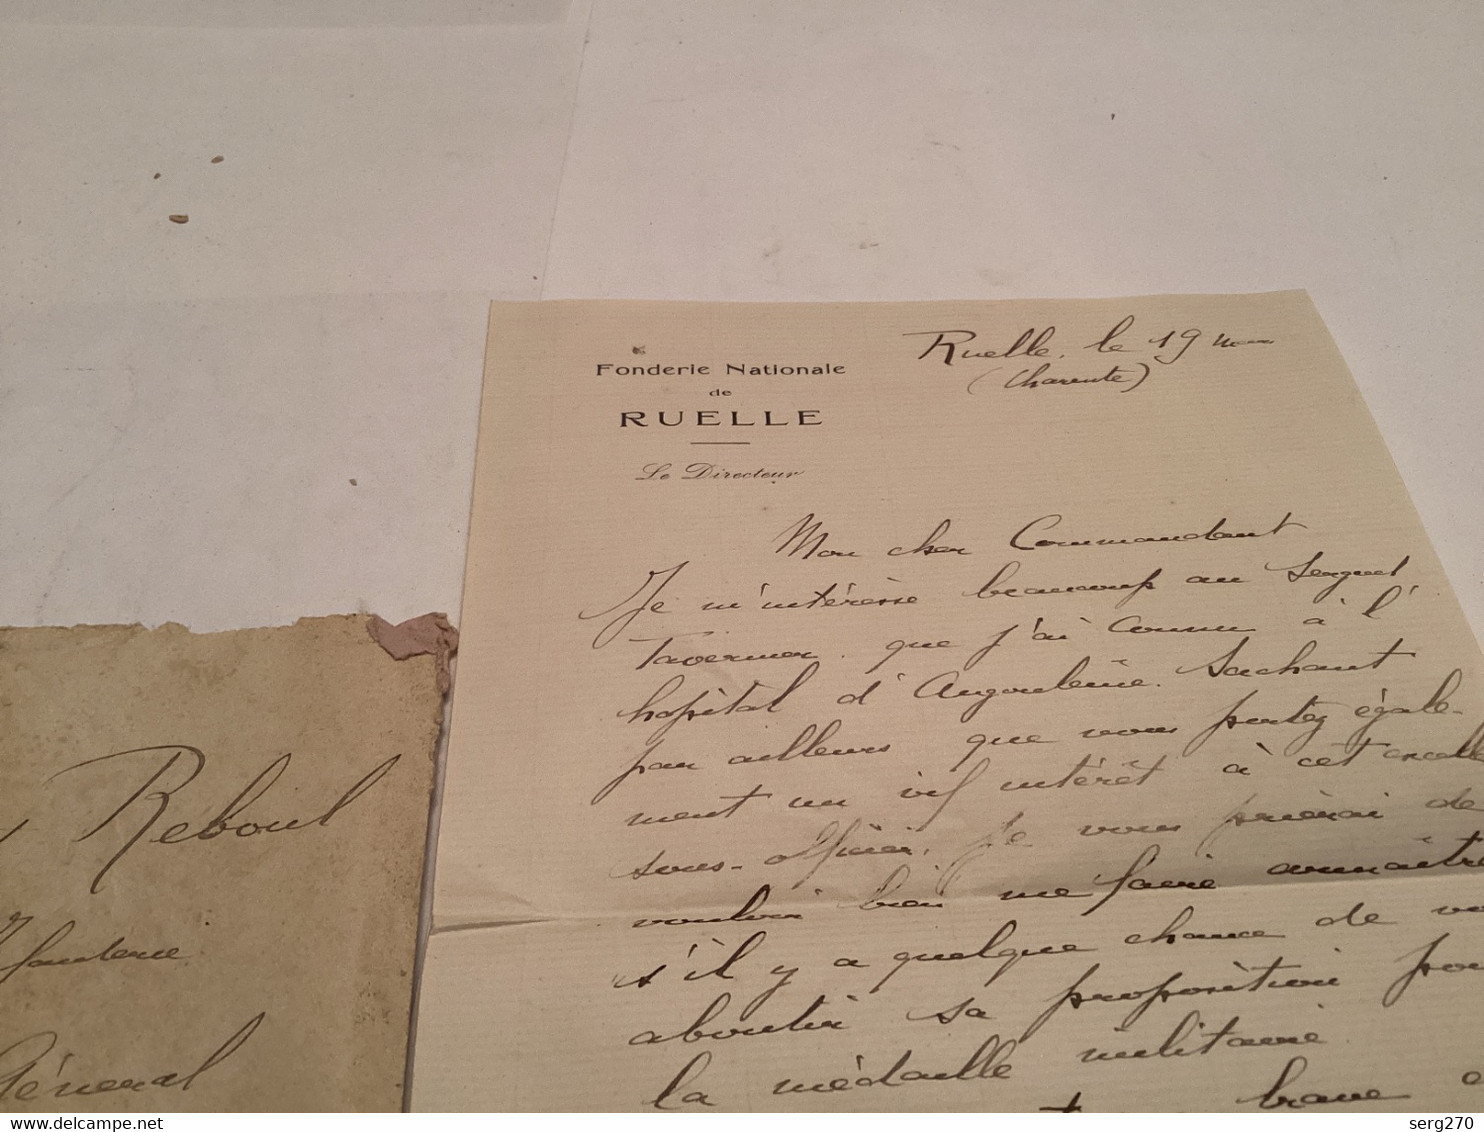 Fonderie Nationale
de
RUELLE
Le Directeur
Ruelle, le 19
(Charente)
Mon cher Commandant
Je m'intéresse beaucoup au Sergent
Tavernier que j'ai connu à l'
hopital d'Angoulême. Sachant
par ailleurs que vous portez égale-
ment un vif intérêt à cet excelle
sous-officier, je vous prierai de
vouloir bien me faire connaître
s'il y a quelque chance de vo
aboutir sa proposition pou
la médaille militaire
brave
Reboul
Infanterie
Général
delcampe.net
serg270